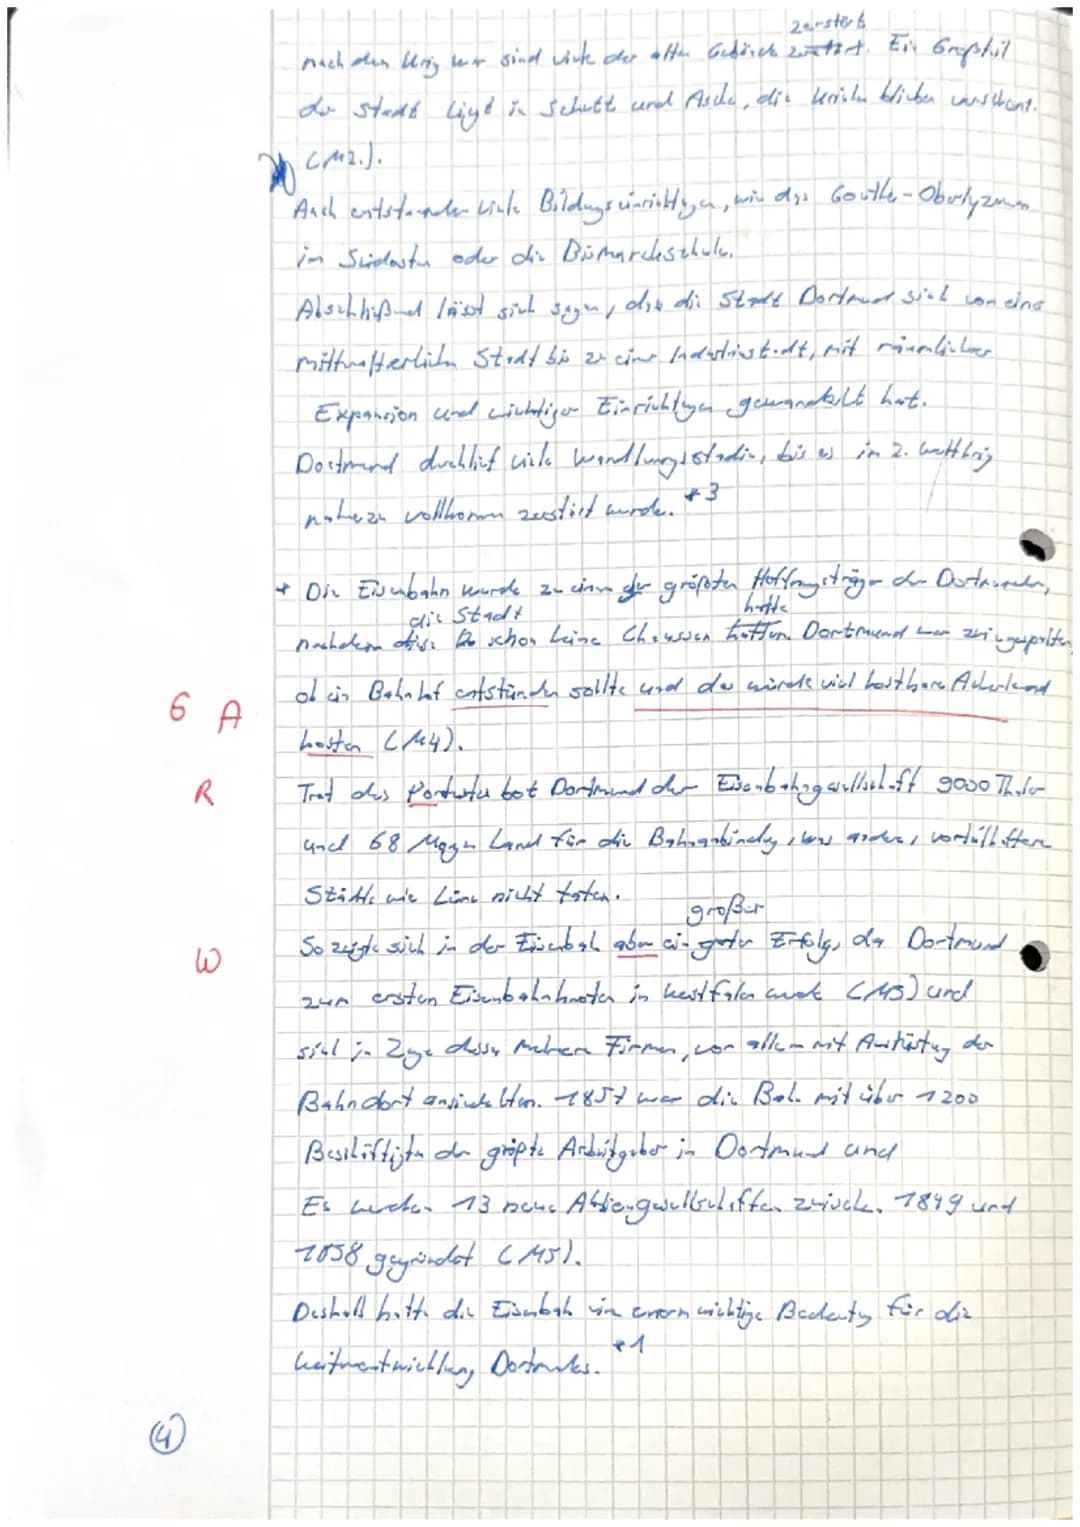 zerstört
nach dem Krieg war sind viele der alten Gebäude zerstört. Ein Großteil
der Stadt liegt in Schutt und Asche, die Kirchen blieben verschont.
(M2.).
Auch entstanden viele Bildungseinrichtungen, wie das Goethe-Oberlyzeum
im Südosten oder die Bismarckschule.
Abschließend lässt sich sagen, das die Stadt Dortmund sich von einer
mittelalterlichen Stadt bis zu einer Industriestadt, mit räumlicher
Expansion und wichtigen Einrichtungen gewandelt hat.
Dortmund durchlief viele Wandlungsstadien, bis es im 2. Weltkrieg
nahezu vollkommen zerstört wurde. *3
* Die Eisenbahn wurde zu einem der größten Hoffnungsträger der Dortmunder,
die Stadt hatte
nachdem diese schon keine Chaussen hatten. Dortmund war zwiegespalten,
ob ein Bahnhof entstünden sollte und da würde viel kostbares Ackerland
6 A
kosten (M4).
R
Trot des bot Dortmund der Eisenbahngesellschaft 9000 Thaler
und 68 Morgen Land für die Bahnanbindung, was andere, vorteilhaftere
Städte wie Lünen nicht taten.
großer
W
So zeigte sich in der Eisenbahn aber ein guter Erfolg, da Dortmund
zum ersten Eisenbahnknoten in Westfalen wurde (M5) und
sich im Zuge dessen mehrere Firmen, vor allem mit Ausrüstung der
Bahn dort ansiedelten. 1857 war die Bahn mit über 1200
Beschäftigten der größte Arbeitgeber in Dortmund und
Es wurden 13 neue Aktiengesellschaften zwischen 1849 und
1858 gegründet (M5).
Deshalb hatte die Eisenbahn eine enorm wichtige Bedeutung für die
Weiterentwicklung Dortmunds. *1
4